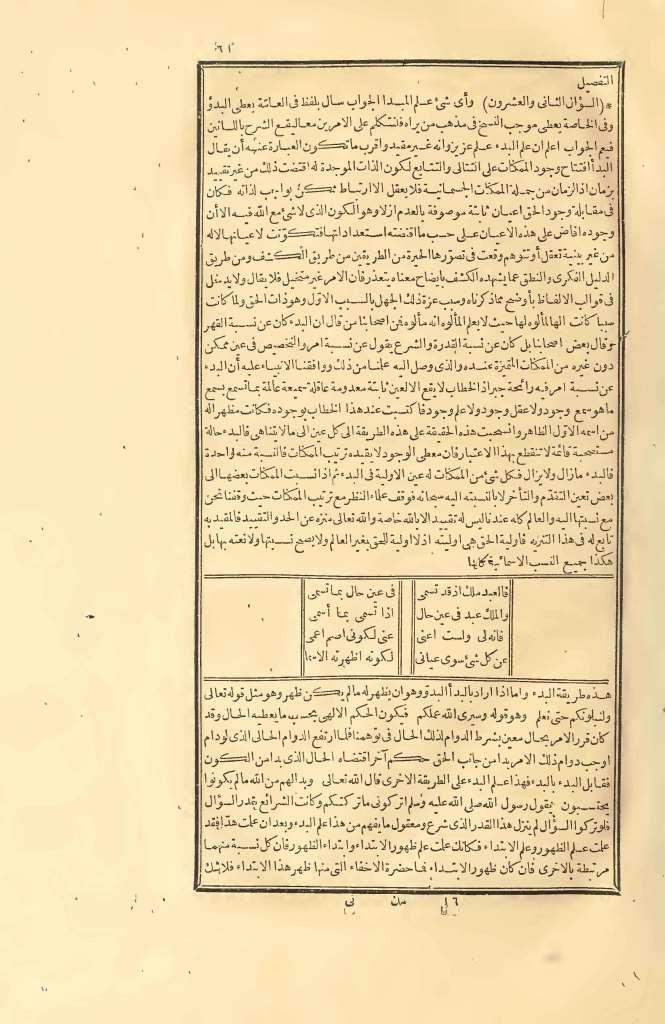 ٦١
التفصيل
*(السؤال الثانى والعشرون) وأى شئ علم المبدا الجواب سال بلفظ فى العامّة يعطى البدؤ
وفى الخاصة يعطى موجب النسخ فى مذهب من يراه فلنتكلم على الامرين معا ليقع الشرح باللسانين
فيعم الجواب اعلم ان علم البدء علم عزيز وانه غير مقيد واقرب ما تكون العبارة عنه أن يقال
البدأ افتتاح وجود الممكنات على التتالى والتتابع لكون الذات الموجدة له اقتضت ذلك من غير تقييد
بزمان اذ الزمان من جملة الممكنات الجسمانية فلا يعقل الا ارتباط ممكن بواجب لذاته فكان
فى مقابلة وجود الحق اعيان ثابتة موصوفة بالعدم ازلا وهو الكون الذى لا شئ مع الله فيه الا أن
وجوده افاض على هذه الاعيان على حسب ما اقتضته استعداداتها فتكوّنت لاعيانها لاله
من غير بينية تعقل أو تتوهم وقعت فى تصوّرها الحيرة من الطريقين من طريق الكشف ومن طريق
الدليل الفكرى والنطق عما يشهده الكشف بايضاح معناه يتعذر فان الامر غير متخيل فلا يقال ولا يدخل
فى قوالب الالفاظ بأوضح مما ذكرناه وسبب عزة ذلك الجهل بالسبب الاوّل وهو ذات الحق ولما كانت
سببا كانت الها لمألوه لها حيث لا يعلم المألوه انه مألوه فمن اصحابنا من قال ان البدء كان عن نسبة القهر
وقال بعض اصحابنا بل كان عن نسبة القدرة والشرع يقول عن نسبة امر والتخصيص فى عين ممكن
دون غيره من الممكنات المتميزة عنده والذى وصل اليه علمنا من ذلك ووافقنا الانبياء عليه أن البدء
عن نسبة امر فيه رائحة جبر اذ الخطاب لا يقع الا لعين ثابتة معدومة عاقلة سميعة عالمة بما تسمع بسمع
ما هو سمع وجود ولا عقل وجود ولا علم وجود فاكتسبت عند هذا الخطاب بوجوده فكانت مظهرا له
من اسمه الاوّل الظاهر وانسحبت هذه الحقيقة على هذه الطريقة الى كل عين الى ما لا يتناهى فالبدء حالة
مستصحبة قائمة لا تنقطع بهذا الاعتبار فان معطى الوجود لا يقيده ترتيب الممكنات فالنسبة منه واحدة
فالبدء ما زال ولا يزال فكل شئ من الممكنات له عين الاولية فى البدء ثم اذا نسبت الممكنات بعضها الى
بعض تعين التقدّم والتأخر لا بالنسبة اليه سبحانه فوقف علماء النظر مع ترتيب الممكنات حيث وقفنا نحن
مع نسبتها اليه والعالم كله عندنا ليس له تقييد الا بالله خاصة والله تعالى منزه عن الحد والتقييد فالمقيد به
تابع له فى هذا التنزيه فأولية الحق هى اوليته اذ لا اولية للحق بغير العالم ولا يصح نسبتها ولا نعته بها بل
هكذا جميع النسب الاسمائية كلها
فالعبد ملك اذ قد تسمى فى عين حال بما تسمى
والملك عبد فى عين حال اذا تسمى بما أسمى
فانه لى ولست اعنى عنى لكونى اصم اعمى
عن كل شئ سوى عيانى لكونه اظهرته الاسما
هذه طريقة البدء واما اذا اراد بالبدأ البدؤ وهو ان يظهر له ما لم يكن ظهر وهو مثل قوله تعالى
ولنبلونكم حتى نعلم وهو قوله وسيرى الله عملكم فيكون الحكم الالهى بحسب ما يعطيه الحال وقد
كان قرر الامر بحال معين بشرط الدوام لذلك الحال فى توهمنا فلما ارتفع الدوام الحالى الذى لو دام
اوجب دوام ذلك الامر بدا من جانب الحق حكم آخر اقتضاه الحال الذى بدا من الكون
فقابل البدء بالبدء فهذا علم البدء على الطريقة الاخرى قال الله تعالى وبدا لهم من الله ما لم يكونوا
يحتسبون بمقول رسول الله صلى الله عليه وسلم اتركونى ما تركتكم وكانت الشرائع بقدر السؤال
فلو تركوا السؤال لم ينزل هذا القدر الذى شرع ومعقول ما يفهم من هذا علم البدء وبعد ان علمت هذا فقد
علمت علم الظهور وعلم الابتداء فكانك علمت علم ظهور الابتداء وابتداء الظهور فان كل نسبة منهما
مرتبطة بالاخرى فان كان ظهور الابتداء فما حضرة الاخفاء التى منها ظهر هذا الابتداء فلا شك
١٦ مك نى